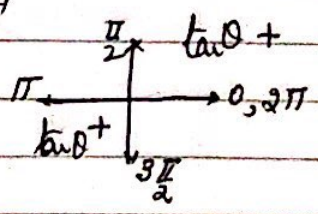 π/2 tanθ +
π 0, 2π
tanθ +
3π/2